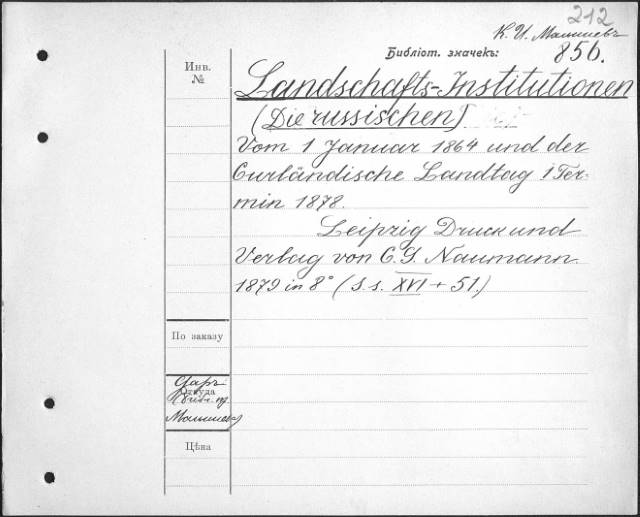 212
К. И. Машиевъ
Библіот. значекъ:
856.
Инв.
№
Landschafts-Institutionen
(Die russischen)
Vom 1 Januar 1864 und der
Curländische Landtag i Ter-
min 1878.
Leipzig Druck und
Verlag von C. G. Naumann.
1879 in 8° (S.s. XVI + 51.)
По заказу
Откуда
Цѣна